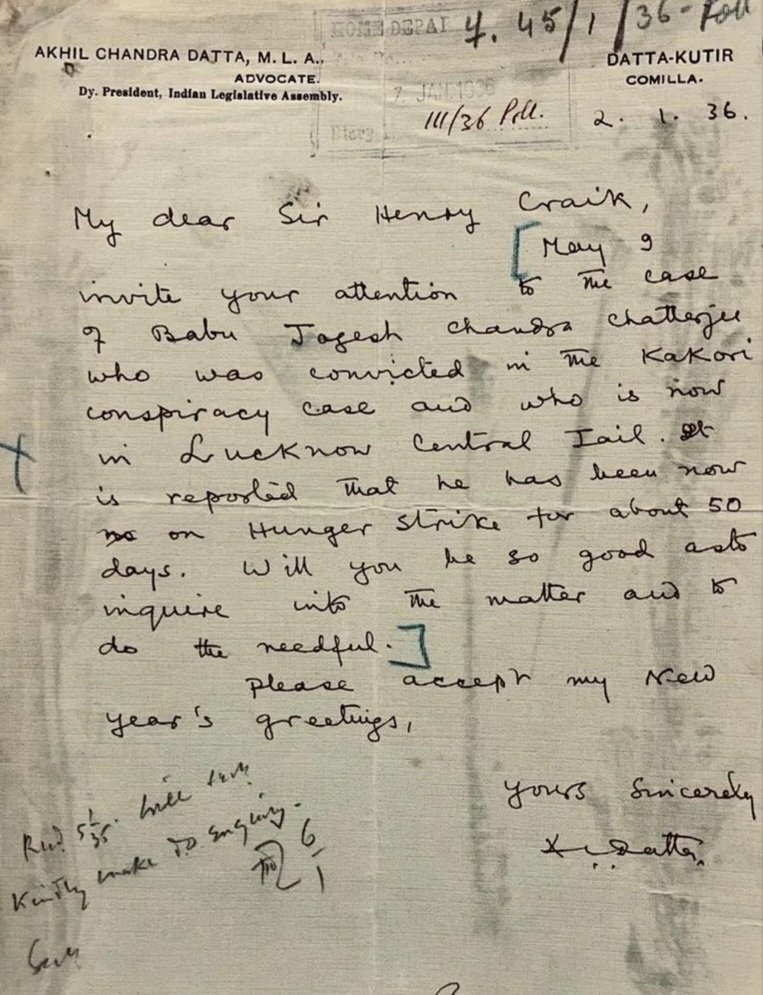 HOME DEPAT
7. 45/1/36-Poll
AKHIL CHANDRA DATTA, M. L. A.,
ADVOCATE.
Dy. President, Indian Legislative Assembly.
DATTA-KUTIR
COMILLA.
7 JAN 1936
Diary
111/36 Poll.
2. 1. 36.
My dear Sir Henry Craik,
[May I
invite your attention to the case
of Babu Jogesh Chandra Chatterjee
who was convicted in the Kakori
conspiracy case and who is now
in Lucknow Central Jail. It
is reported that he has been now
on Hunger strike for about 50
days. Will you be so good as to
inquire into the matter and to
do the needful.]
Please accept my New
Year's greetings,
Yours Sincerely
Datta
Kindly make
6/1